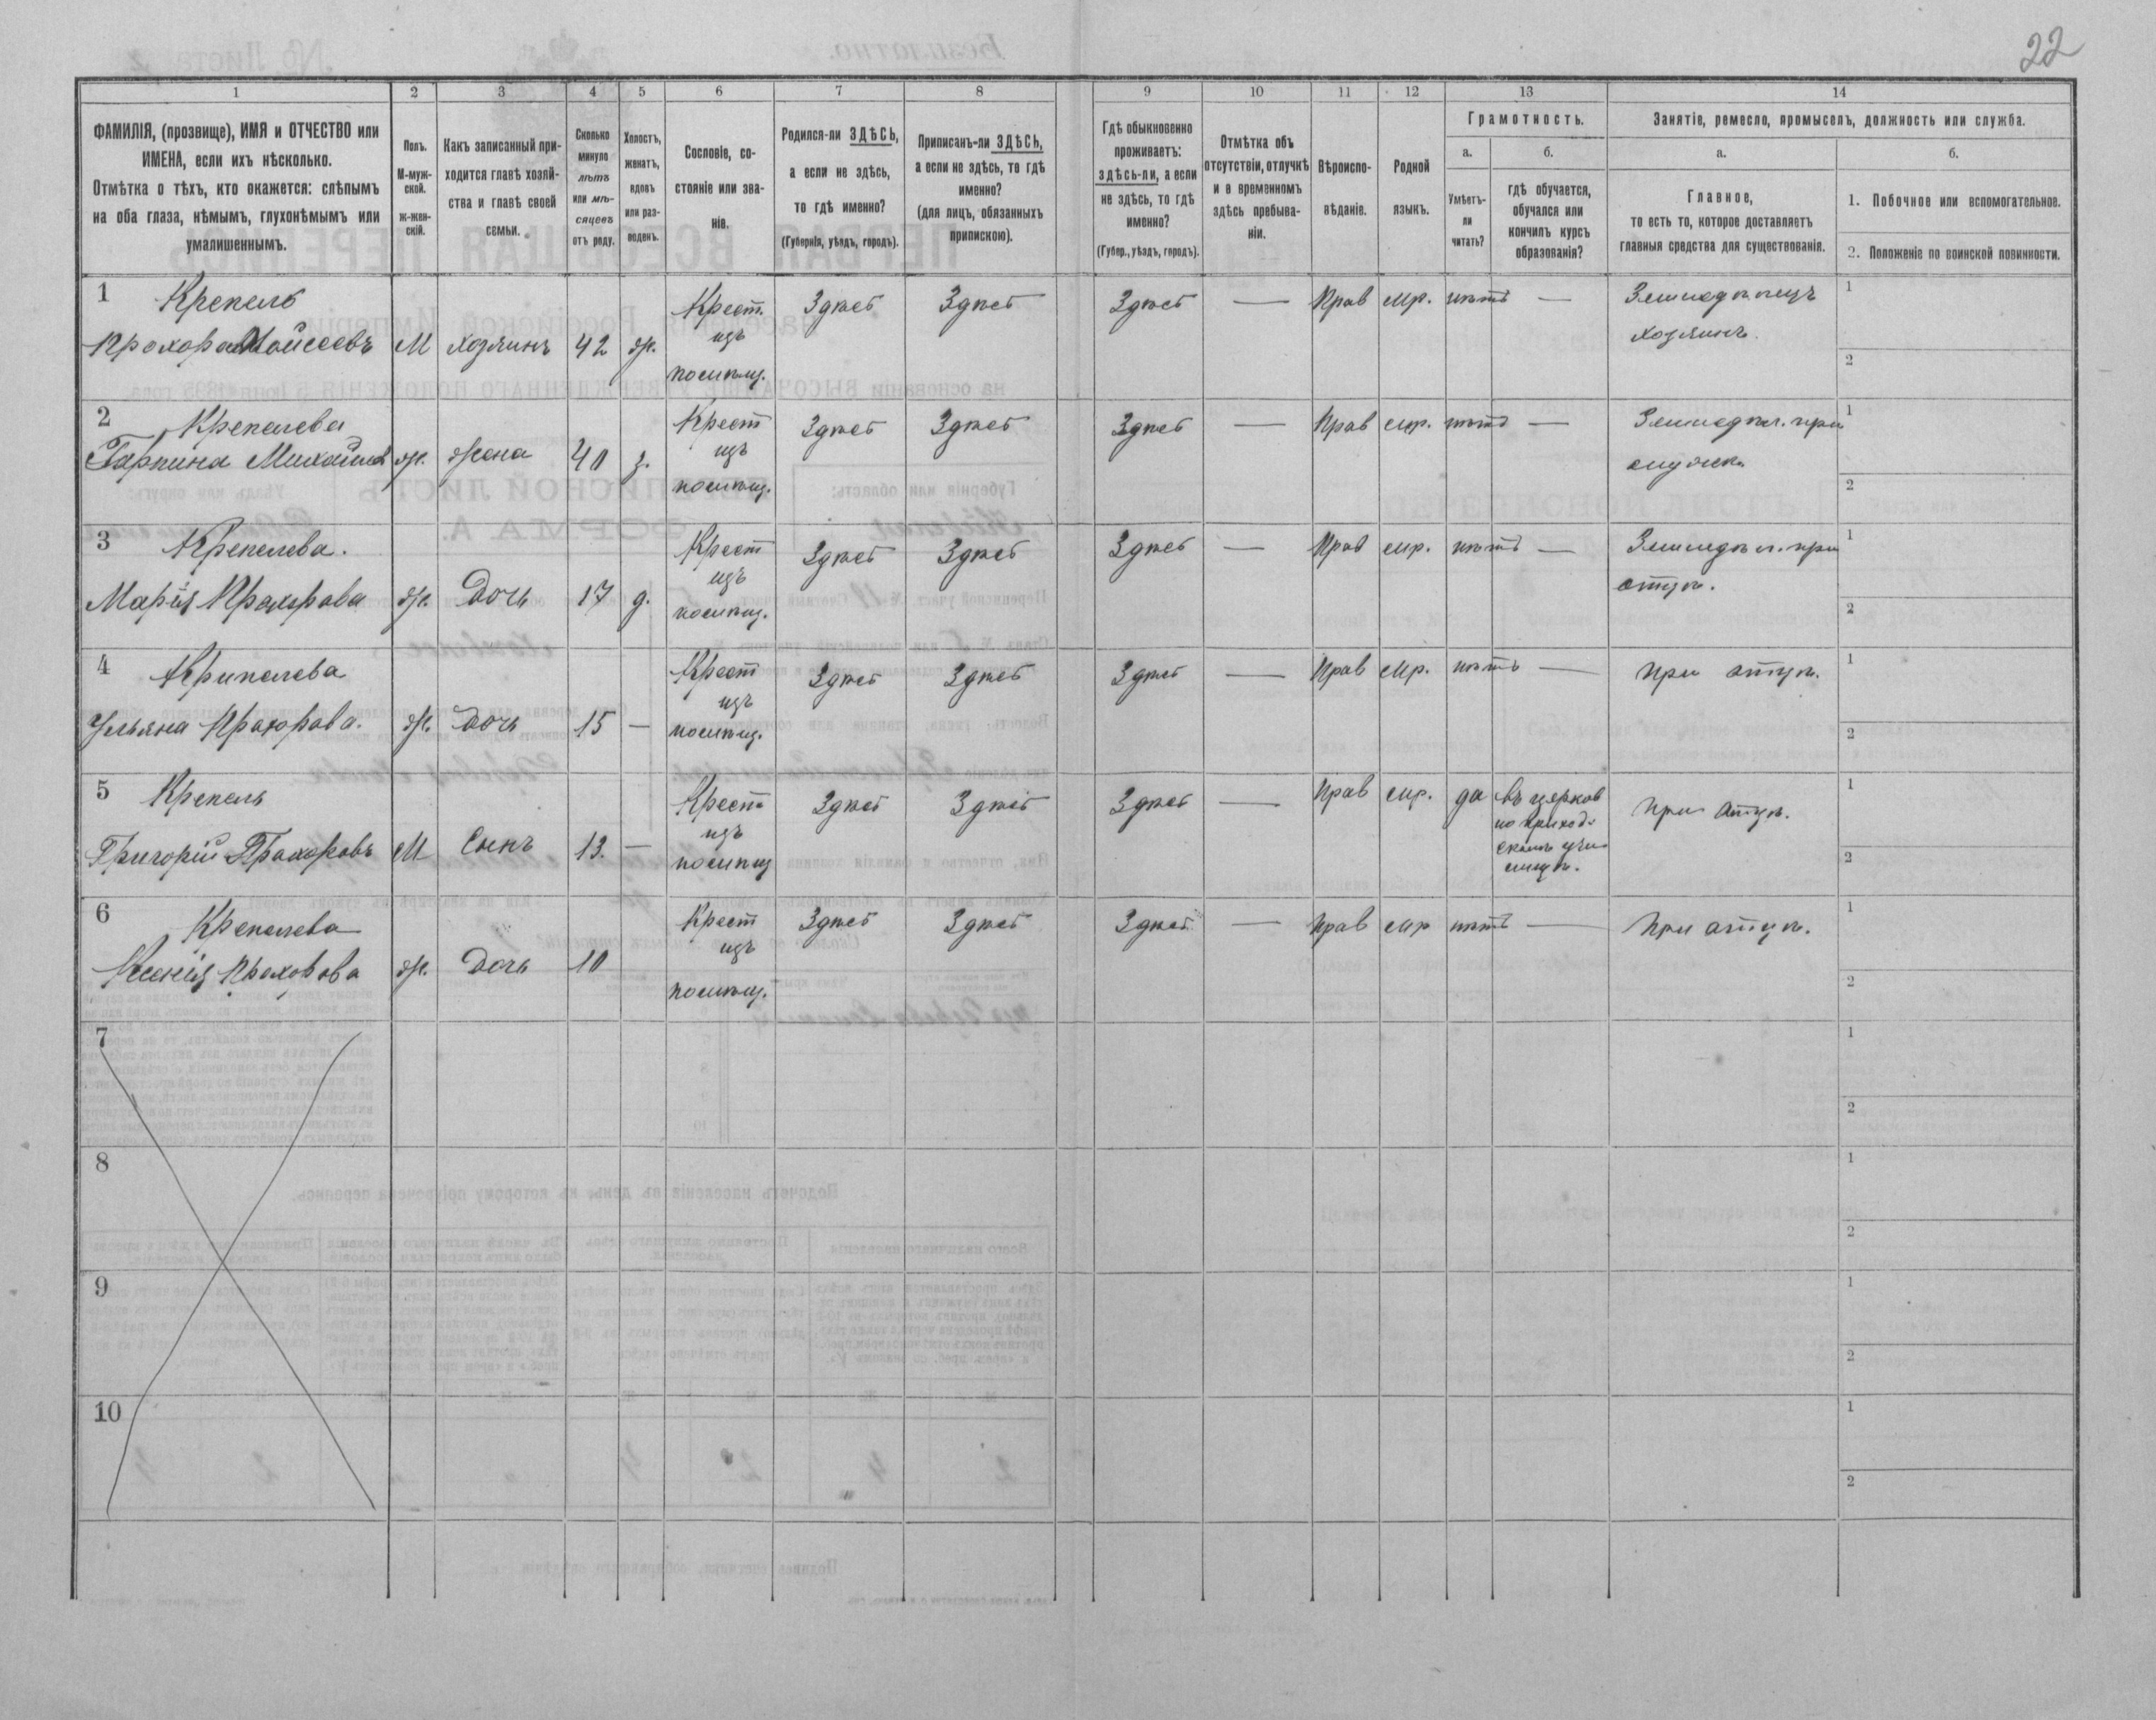 22
1 2 3 4 5 6 7 8 9 10 11 12 13 14
ФАМИЛІЯ, (прозвище), ИМЯ и ОТЧЕСТВО или
ИМЕНА, если ихъ нѣсколько.
Отмѣтка о тѣхъ, кто окажется: слѣпымъ
на оба глаза, нѣмымъ, глухонѣмымъ или
умалишеннымъ.
Полъ.
М-муж-
ской.
ж-жен-
скій.
Какъ записанный при-
ходится главѣ хозяй-
ства и главѣ своей
семьи.
Сколько
минуло
лѣтъ
или мѣ-
сяцевъ
отъ роду.
Холостъ,
женатъ,
вдовъ
или раз-
веденъ.
Сословіе, со-
стояніе или зва-
ніе.
Родился-ли ЗДѢСЬ,
а если не здѣсь,
то гдѣ именно?
(Губернія, уѣздъ, городъ).
Приписанъ-ли ЗДѢСЬ,
а если не здѣсь, то гдѣ
именно?
(для лицъ, обязанныхъ
припискою).
Гдѣ обыкновенно
проживаетъ:
здѣсь-ли, а если
не здѣсь, то гдѣ
именно?
(Губер., уѣздъ, городъ).
Отмѣтка объ
отсутствіи, отлучкѣ
и о временномъ
здѣсь пребыва-
ніи.
Вѣроиспо-
вѣданіе.
Родной
языкъ.
Грамотность.
а.
Умѣетъ-
ли
читать?
б.
гдѣ обучается,
обучался или
кончилъ курсъ
образованія?
Занятіе, ремесло, промыселъ, должность или служба.
а.
Главное,
то есть то, которое доставляетъ
главныя средства для существованія.
б.
1. Побочное или вспомогательное.
2. Положеніе по воинской повинности.
1 Крепель Крест. Здѣсь Здѣсь Здѣсь — Прав мр. нѣтъ — Земледѣлецъ 1
Прохоръ Мойсеевъ М хозяинъ 42 ж. изъ хозяинъ.
посиляц. 2
2 Крепелева Крест Здѣсь Здѣсь Здѣсь — Прав мр. нѣтъ — Земледѣл. при 1
Гарпина Михайлова ж. жена 40 з. изъ
2
3 Крепелева. Крест Здѣсь Здѣсь Здѣсь — Прав мр. нѣтъ — Земледѣл. при 1
Марія Прохорова ж. Дочь 17 д. изъ отцѣ.
2
4 Крипелева Крест Здѣсь Здѣсь Здѣсь — Прав мр. нѣтъ — при отцѣ. 1
Ульяна Прохорова. ж. Дочь 15 — изъ
2
5 Крепель Крест Здѣсь Здѣсь Здѣсь — Прав мр. да въ церков при отцѣ. 1
но приход-
Григорій Прохоровъ М Сынъ 13. — изъ скомъ учи-
лищѣ. 2
6 Крепелева Крест Здѣсь Здѣсь Здѣсь — Прав мр нѣтъ — при отцѣ. 1
Ксенія Прохорова ж. Дочь 10 изъ
2
7 1
2
8 1
2
9 1
2
10 1
2